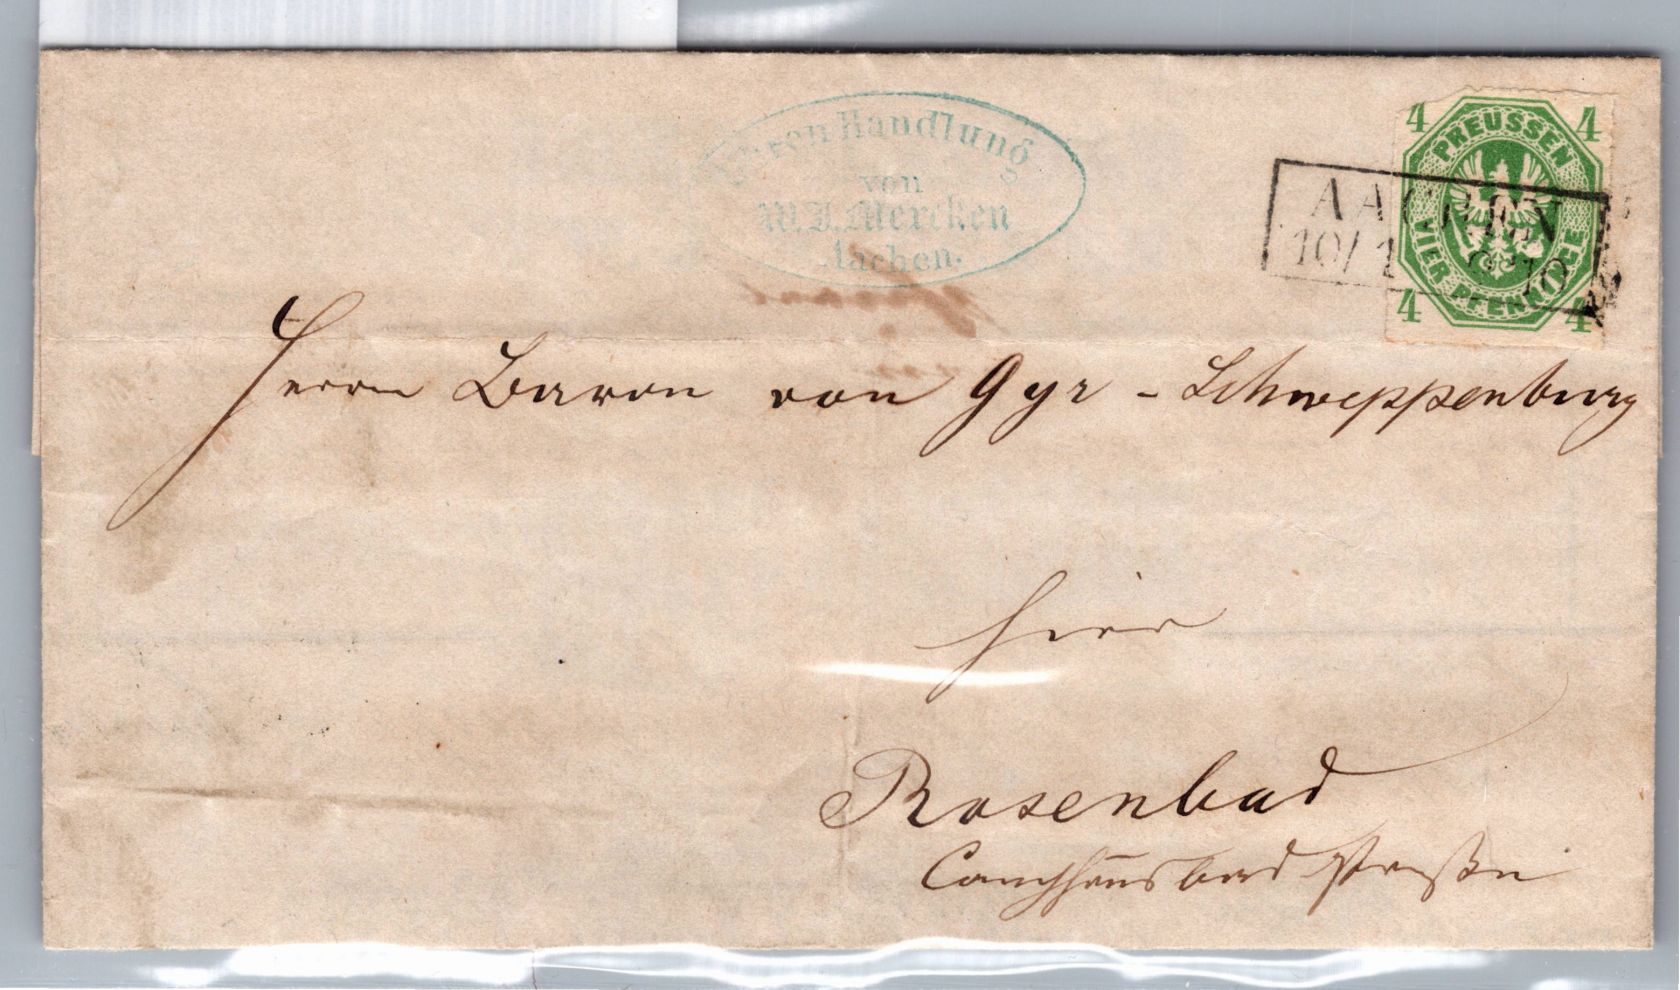 Handlung
von
W. J. Mercken
Aachen.
4 4
PREUSSEN
VIER PFENNINGE
4 4
AACHEN
10/1
Herrn Baron von Gyr - Schweppenburg
hier
Rosenbad